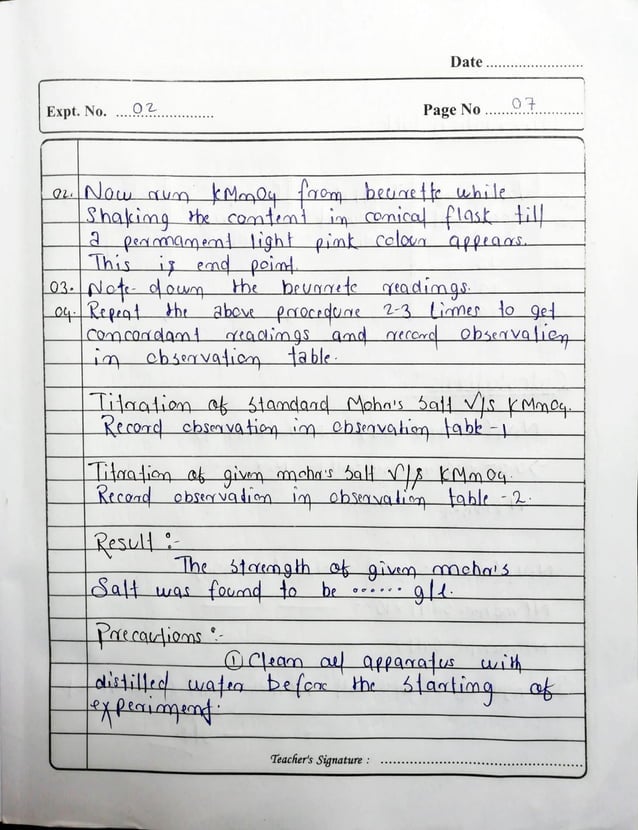 Date ........................
Expt. No. ....02....................
Page No ........07....................
02. Now run KMnO4 from beurette while
Shaking the content in conical flask till
a permanament light pink colour appears.
This is end point.
03. Note-down the beurrete readings.
04. Repeat the above procedure 2-3 times to get
concordant readings and record observation
in observation table.
Titration of Standard Mohr's Salt V/s KMnO4.
Record observation in observation table -1
Titration of given mohr's salt V/s KMnO4.
Record observation in observation table -2.
Result :-
The strength of given mohr's
Salt was found to be ...... g/l.
Precautions :-
① Clean all apparatus with
distilled water before the starting of
experiment.
Teacher's Signature : ................................................